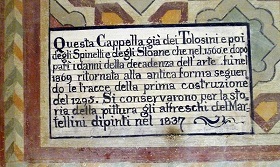 Questa Cappella già dei Tolosini e poi
degli Spinelli e degli Sloane che nel 1560 e dopo
patì i danni della decadenza dell'arte fu nel
1869 ritornata alla antica forma seguen
do le tracce della prima costruzione
del 1295. Si conservarono per la sto
ria della pittura gli affreschi del Mar
tellini dipinti nel 1837